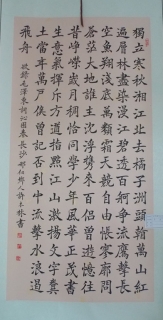 獨立寒秋湘江北去橘子洲頭看萬山紅
遍層林盡染漫江碧透百舸爭流鷹擊長
空魚翔淺底萬類霜天競自由悵寥廓問
蒼茫大地誰主沉浮攜來百侶曾遊憶往
昔崢嶸歲月稠恰同學少年風華正茂書
生意氣揮斥方遒指點江山激揚文字糞
土當年萬戶侯曾記否到中流擊水浪遏
飛舟 敬錄毛澤東詞沁園春長沙 人許 林書